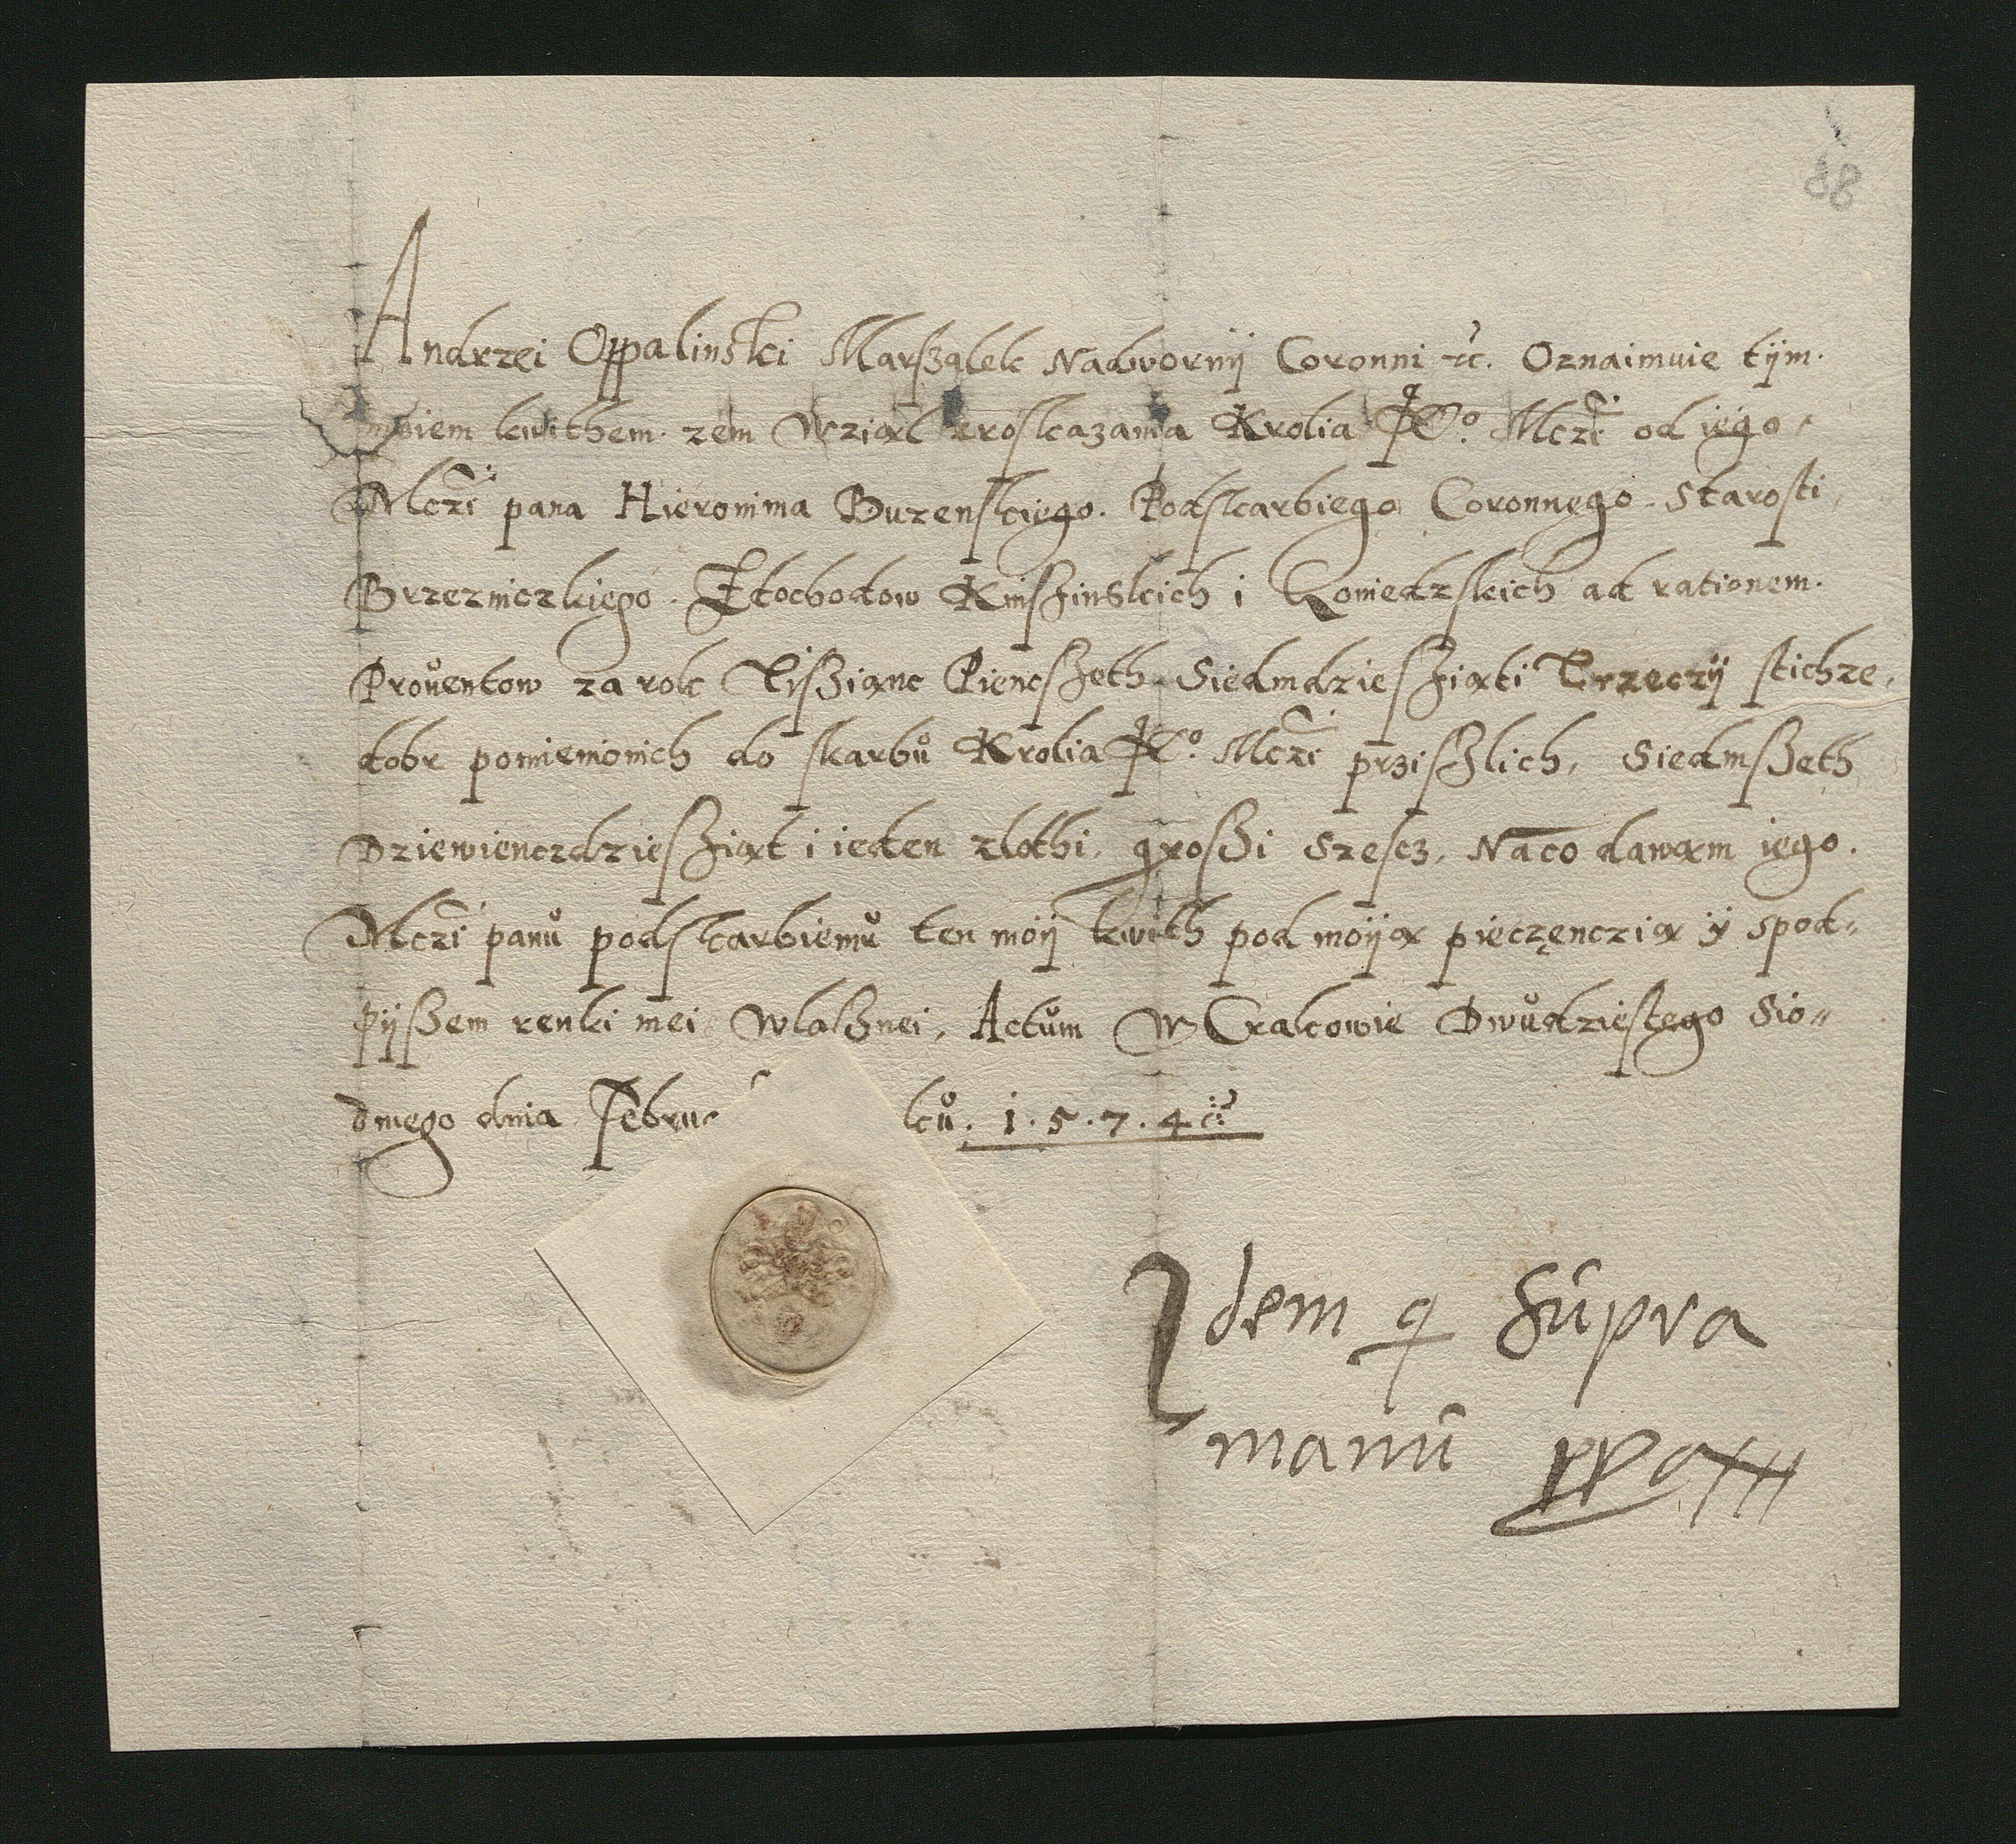 88
Andrzei Oppalinski Marszalek Nadwornij Coronni etc. Oznaimuie tijm.
moiem kwithem. zem Wziął zroskazania Krolia Je° Mczi od iego
Mczi pana Hieronima Buzenskiego. Podskarbiego Coronnego. Starosti
Brzezniczkiego. Zdochodow Knisinskich i Loniedzskich ad rationem.
Prouentow za rok Tisziąnc Piencszeth Siedmdziesziąti Trzeczij stichze
dobr pomienionich do skarbu Krolia Je° Mczi prziszlich, Siedmszeth
Dziewienczdziesziąt i ieden zlothi, groszi Szescz, Naco dawąm iego.
Mczi panu podskarbiemu ten moij kwith pod moiją pieczęnczią ÿ spod-
pijszem renki mei Wlasznei, Actum W Cracowie Dwudziestego Sio-
dmego dnia Februa ku. 1.5.7.4
Idem q Supra
manu ppa